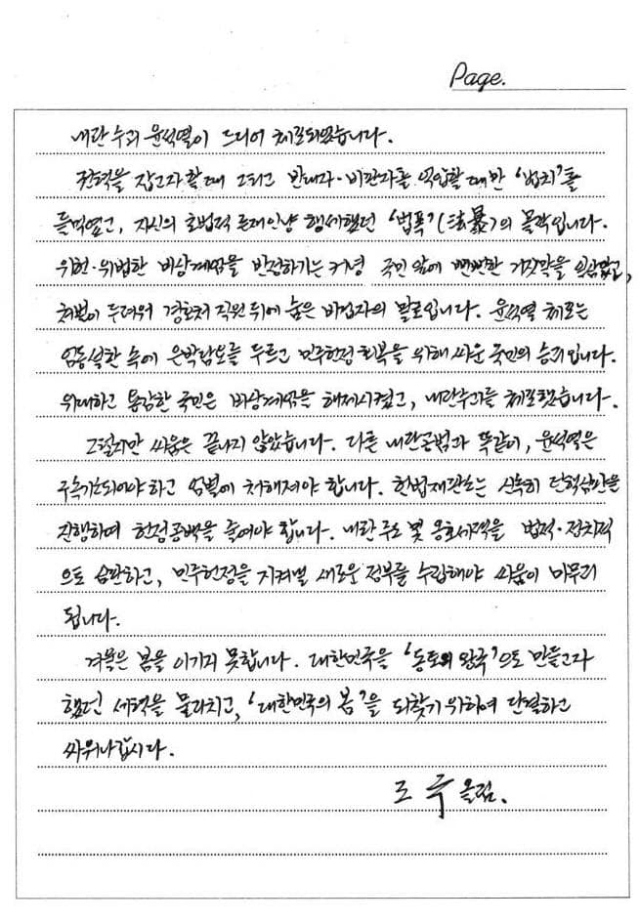 Page.
내란 수괴 윤석열이 드디어 체포되었습니다.
권력을 잡고자 할 때 그리고 반대자·비판자를 억압할 때만 '법치'를
들먹였고, 자신의 초법적 존재인냥 행세했던 '법폭'(法暴)의 몰락입니다.
위헌·위법한 비상계엄을 반성하기는 커녕 국민 앞에 뻔뻔한 거짓말을 일삼았고,
처벌이 두려워 경호처 직원 뒤에 숨은 비겁자의 말로입니다. 윤석열 체포는
엄동설한 속에 은박담요를 두르고 민주헌정 회복을 위해 싸운 국민의 승리입니다.
위대하고 용감한 국민은 비상계엄을 해제시켰고, 내란수괴를 체포했습니다.
그렇지만 싸움은 끝나지 않았습니다. 다른 내란공범과 똑같이, 윤석열은
구속기소되어야 하고 엄벌에 처해져야 합니다. 헌법재판소는 신속히 탄핵심판을
진행하며 헌정공백을 줄여야 합니다. 내란 주도 및 옹호세력을 법적·정치적
으로 심판하고, 민주헌정을 지켜낼 새로운 정부를 수립해야 싸움이 마무리
됩니다.
겨울은 봄을 이기지 못합니다. 대한민국을 '동토의 왕국'으로 만들고자
했던 세력을 물리치고, '대한민국의 봄'을 되찾기 위하여 단결하고
싸워나갑시다.
조 국 올림.